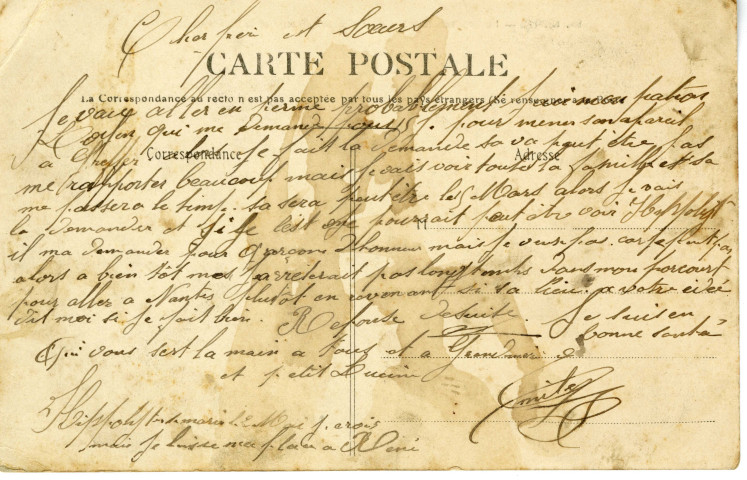 Cher frère et Sœurs
CARTE POSTALE
La Correspondance au recto n'est pas acceptée par tous les pays étrangers (Se renseigner
Je vais aller en ferme probablement pour mon patron
qui me demande pour 15 j. pour mener son appareil
Correspondance
Adresse
a Je fait la demande sa va peut être pas
me rapporter beaucoup mais je vais voir toute la famille et sa
me passera le temp. sa sera peut être les Mars alors je vais
la demander et si je l'est one pourrait peut être voir Hippolyte
il ma demander pour garçons d'honneur mais je veux pas car je peut pas
alors a bien tôt mes j'arréterait pas longtemps dans mon parcourt
pour allez a Nantes plutot en revenant si sa lieu a votre idée
dit moi si je fait bien. Reponse desuite. Je suis en
bonne santé
Qui vous sert la main a tous et a Grandmère
et petit Lucien
Emile
Hippolyte se marie le Mai je crois
mais je laisse ma place a René